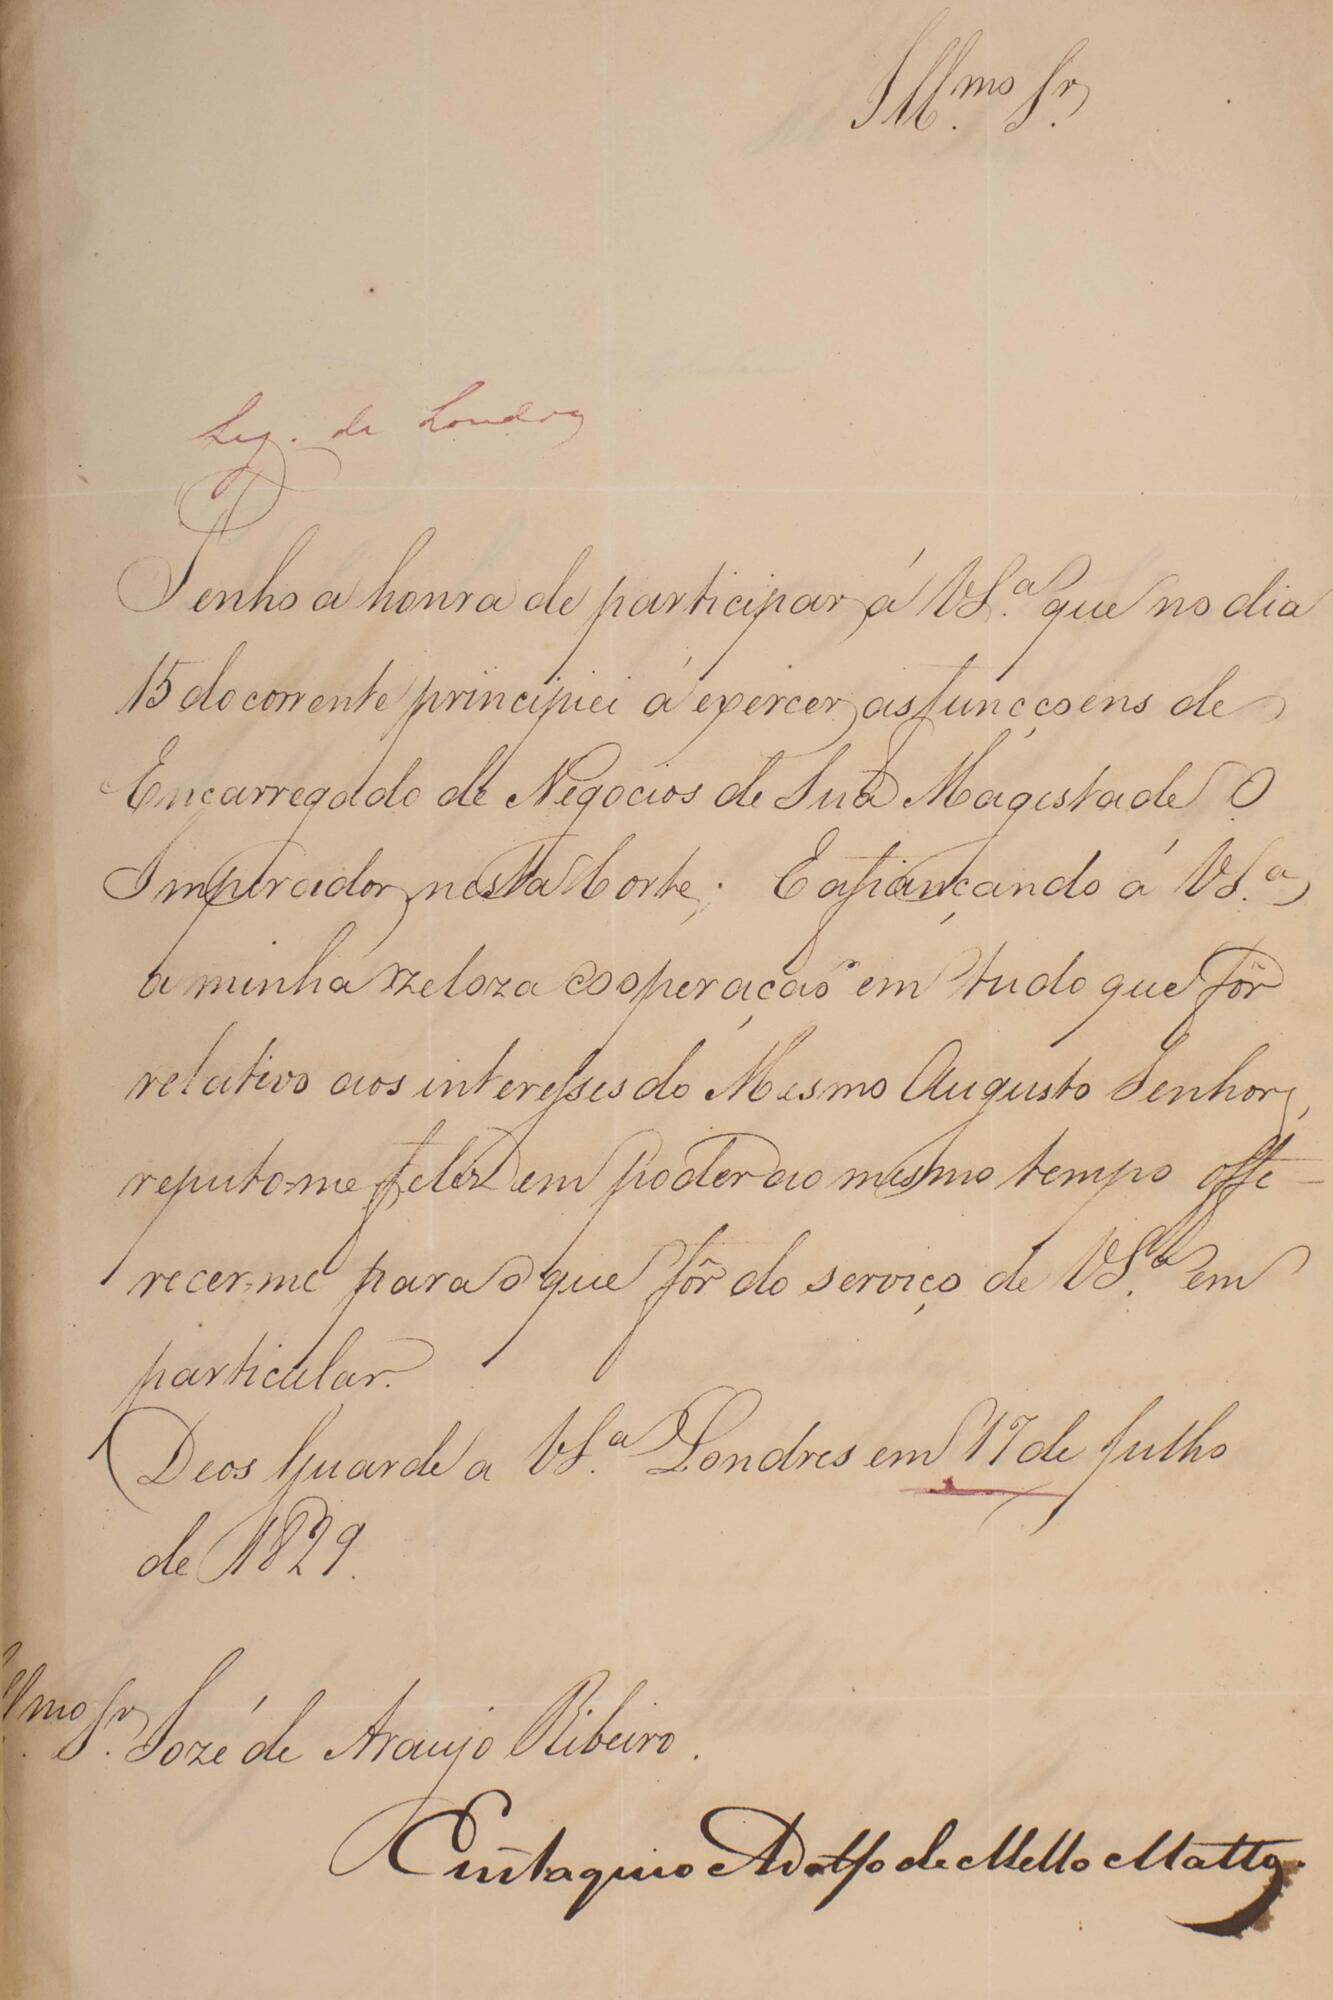 Ill.mo Sr.
Leg. de Londres
Tenho a honra de participar á VS.a que no dia
15 do corrente principiei á exercer as funcçoens de
Encarregado de Negocios de Sua Magestade O
Imperador nesta Corte; E afiançando á VS.a
a minha zeloza cooperação em tudo que fôr
relativo aos interesses do Mesmo Augusto Senhor,
reputo-me feliz em poder ao mesmo tempo offe-
recer-me para o que fôr do serviço de VS.a em
particular.
Deos Guarde a VS.a Londres em 17 de Julho
de 1829.
Illmo Sr. Jozé de Araujo Ribeiro.
Eustaquio Adolfo de Mello Mattos.